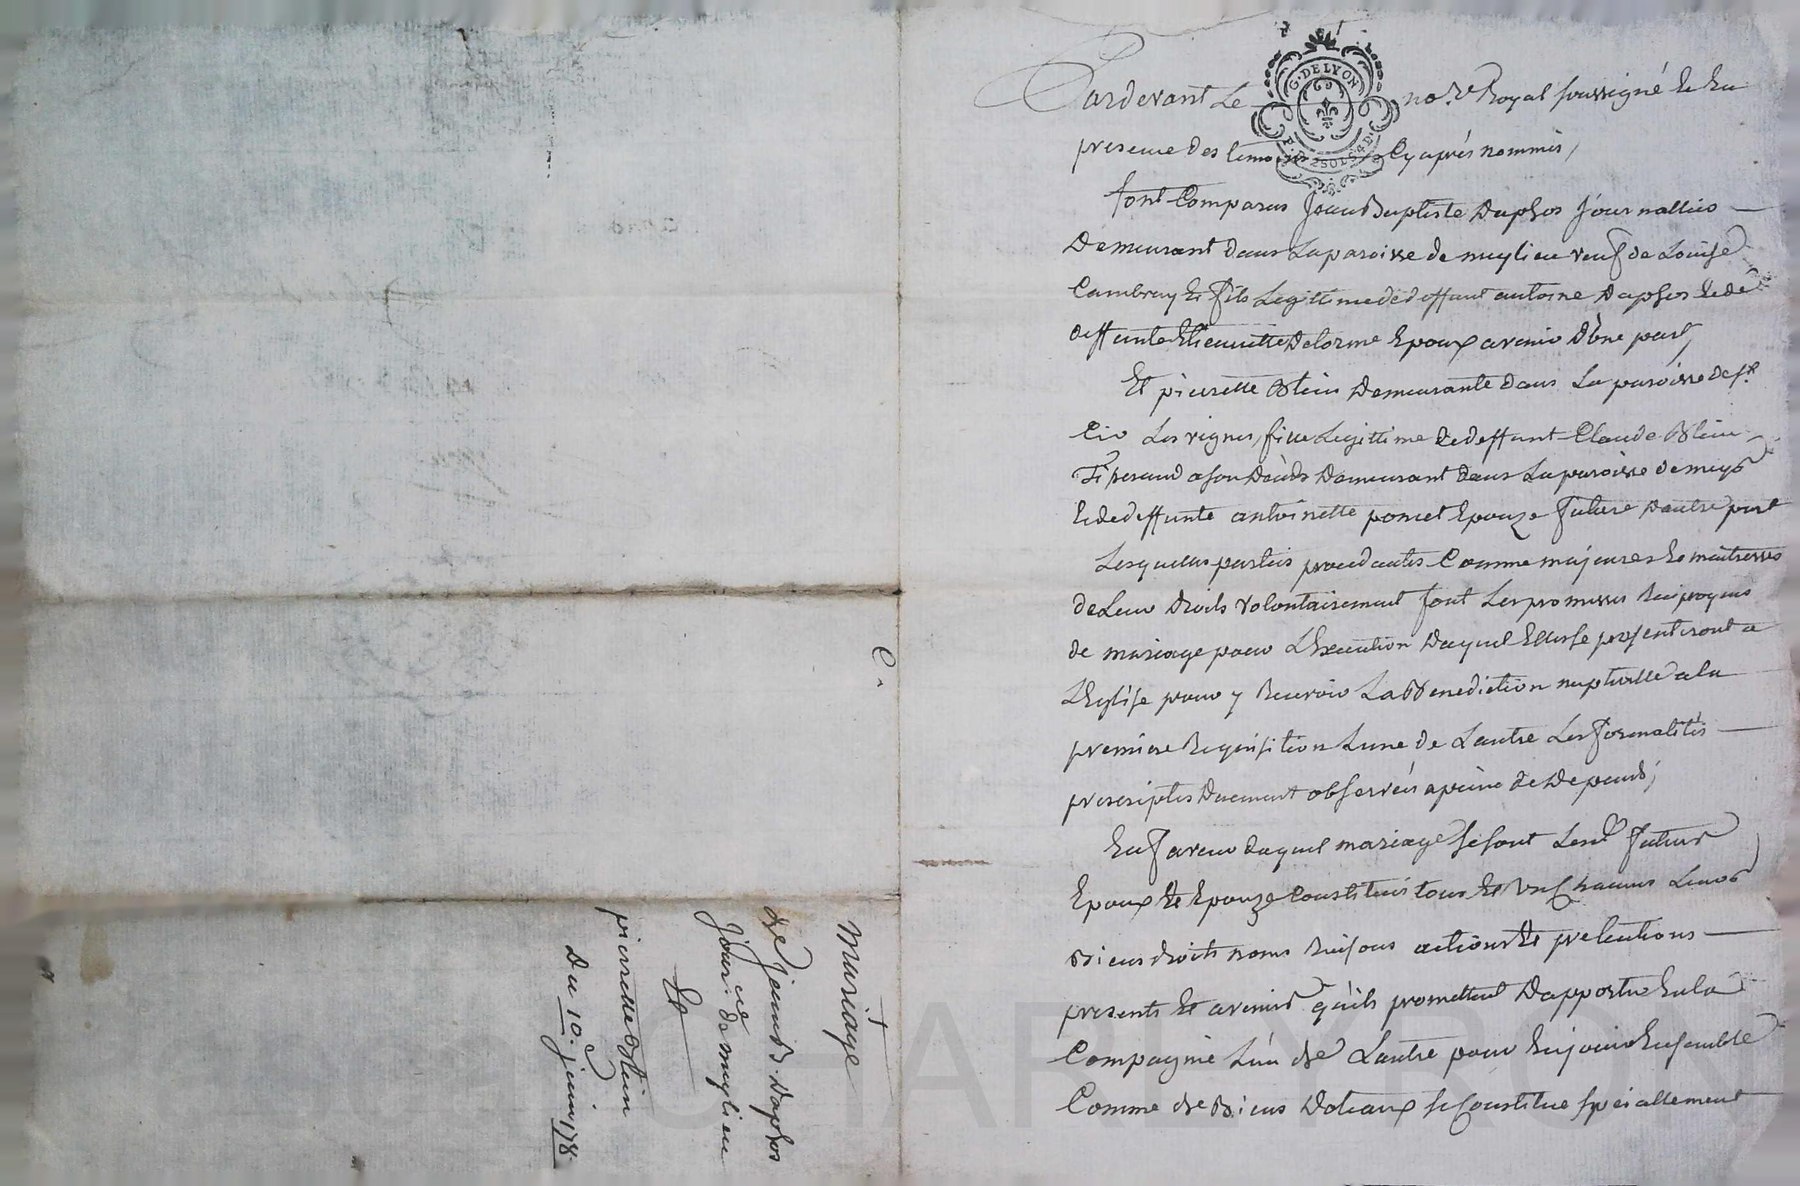 Pardevant Le no.re Royal soussigné Et En
G. DE LYON
P. P. 2 SOLS 4 D.
presence des temoins Cy aprés nommés,
sont Comparus Jean Baptiste Daphos Journallier
Demeurant dans La paroisse de meylieu veuf de Louise
Cambray Et fils Legittime de deffunt antoine Daphos Et de
deffunte Etiennette Delorme Epoux avenir D'une part,
Et pierrette Blein Demeurante dans La paroisse de st
Cir Les vignes, fille Legittime de deffunt Claude Blein
Tisserand a son Décès Demeurant dans La paroisse de meys
Et de deffunte antoinette poncet Epouze future Dautre part
Lesquelles parties procedantes Comme majeures Et maitresses
de Leur Droits volontairement font Les promesses Reciproques
de mariage pour L'Execution Duquel Elles se presenteront a
L'Eglise pour y Recevoir La Benediction nuptialle a la
premiere Requisition L'une de L'autre Les formalités
prescriptes Duement observées a peine de Depends;
En faveur duquel mariage se sont Lesd futurs
Epoux Et Epouze Constitués tous Et Uns Chacuns Leurs
Biens droits noms Raisons actions Et pretentions
presents Et avenirs qu'ils promettent D'apporter En la
Compagnie L'un de L'autre pour En jouir Ensemble
Comme de Biens Dotaux se Constitue speciallement
C.
Mariage
de Jean B. Daphos
jour. de meylieu
Et
pierrette Blein
Du 10. juin 178
CHARLYRON